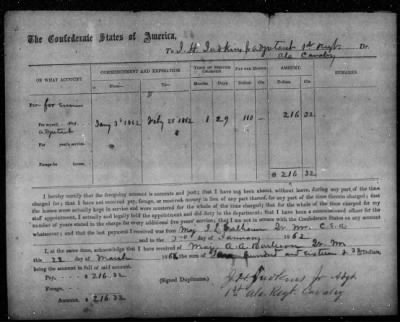 The Confederate States of America,
To J. H. Judkins adjutant 1st Regt. Dr.
Ala Cavalry
ON WHAT ACCOUNT. COMMENCEMENT AND EXPIRATION TIME OF SERVICE CHARGED PAY PER MONTH. AMOUNT. REMARKS.
From— To— Months. Days. Dollars. Dollars. Cts.
Pay for
Per month 1862 1862 1 29 110 216 32
adjutant
For years' service.
Forage for horses.
$ 216 32
I hereby certify that the foregoing account is accurate and just; that I have not been absent, without leave, during any part of the time
charged for; that I have not received pay, forage, or received money in lieu of any part thereof, for any part of the time therein charged; that
the horses were actually kept in service and were mustered for the whole of the time charged; that for the whole of the time charged for my
staff appointment, I actually and legally held the appointment and did duty in the department; that I have been a commissioned officer for the
number of years stated in the charge for every additional five years' service; that I am not in arrears with the Confederate States on any account
whatsoever; and that the last payment I received was from Maj J. L. Calhoun Qr. Mr. C.S.A
and to the day of January 1862
I, at the same time, acknowledge that I have received of Maj. A. A. Burleson Qr. Mr.
this 22 day of March 1862 the sum of hundred and sixteen & 32 dollars,
being the amount in full of said account.
Pay, $ 216 32
Forage, (Signed Duplicates.)
Amount, $ 216 32
1st Ala Regt Cavalry